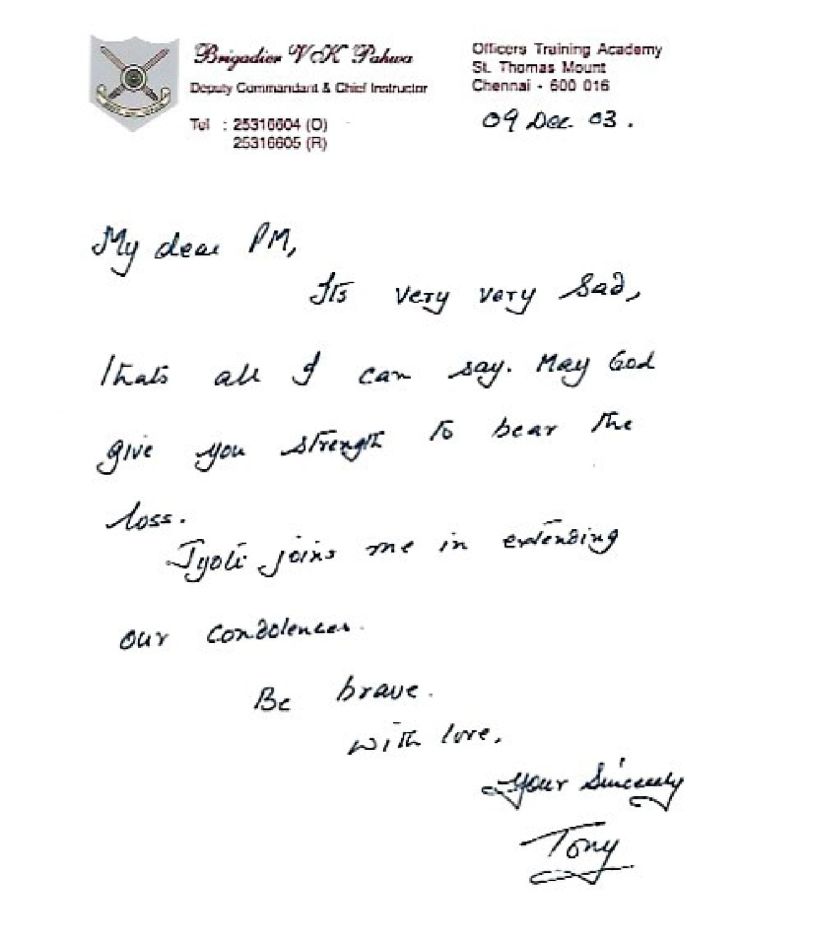 Brigadier V K Pahwa
Deputy Commandant & Chief Instructor
Tel : 25316604 (O)
25316605 (R)
Officers Training Academy
St. Thomas Mount
Chennai - 600 016
09 Dec. 03.
My dear PM,
Its very very sad,
thats all I can say. May God
give you strength to bear the
loss.
Jyoti joins me in extending
our condolences.
Be brave.
With love,
Your Sincerely
Tony